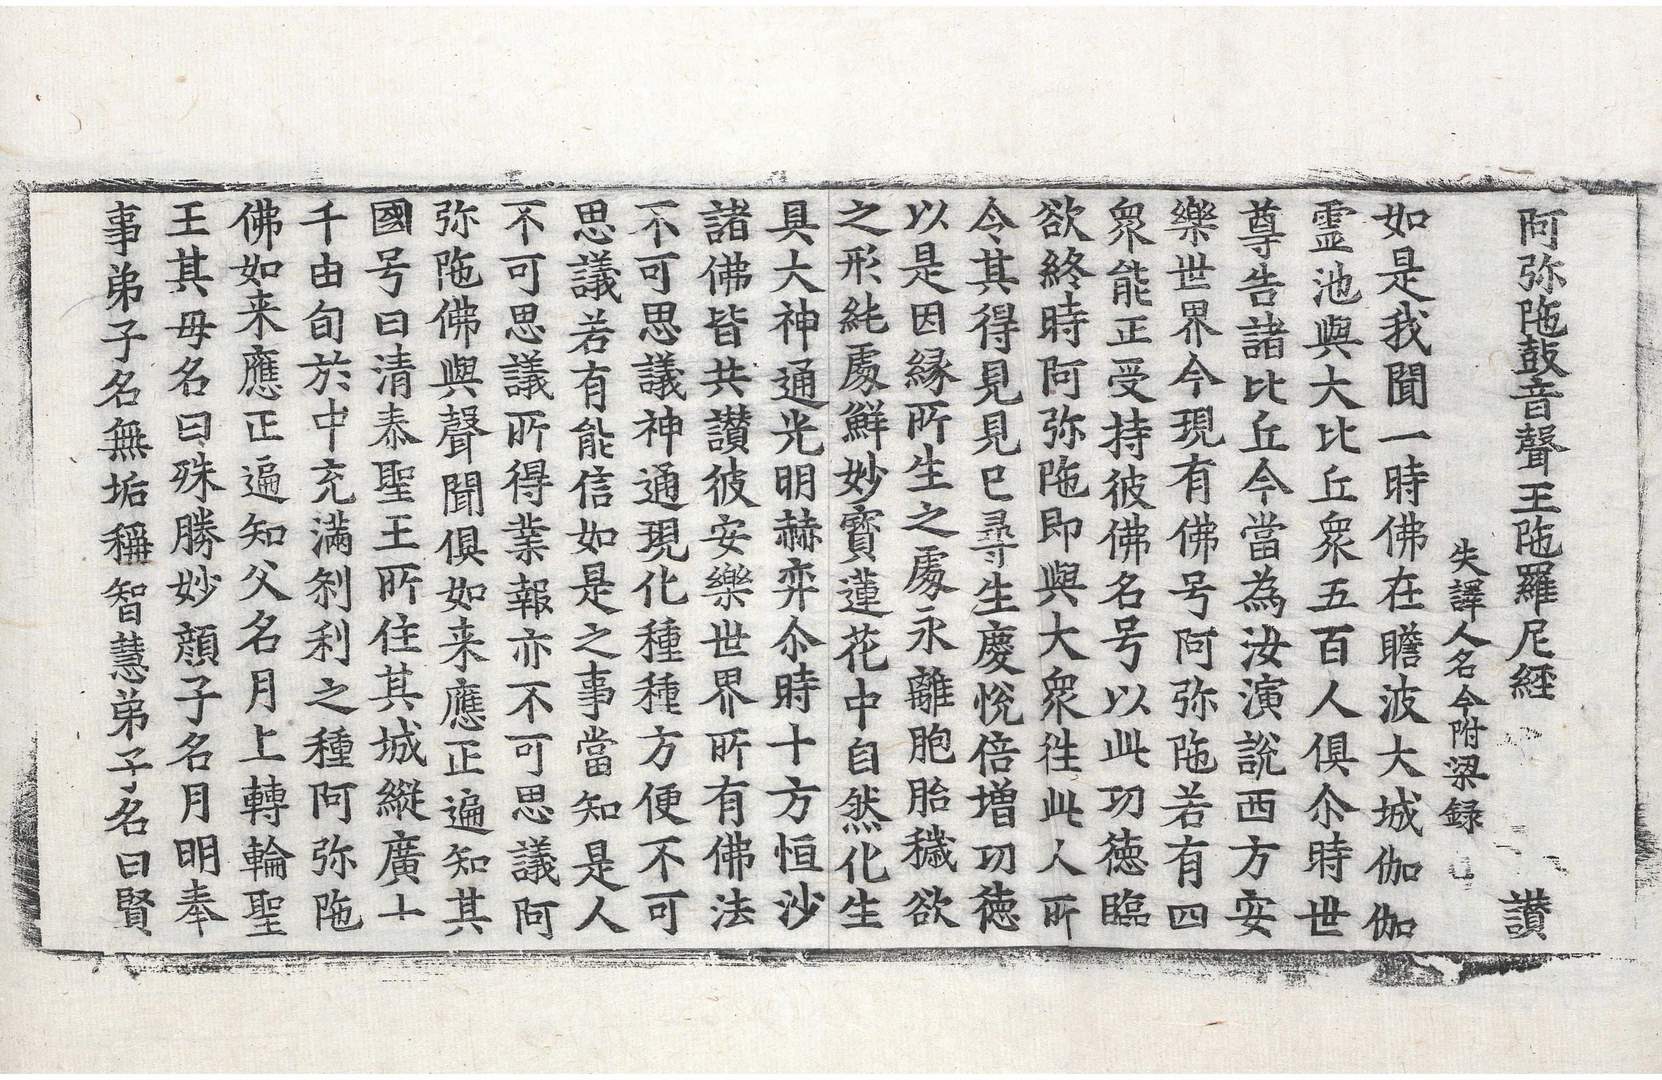 阿弥陁鼓音聲王陁羅尼經 讃
失譯人名今附梁録
如是我聞一時佛在瞻波大城伽伽
霊池與大比丘衆五百人俱尒時世
尊告諸比丘今當為汝演說西方安
樂世界今現有佛号阿弥陁若有四
衆能正受持彼佛名号以此功徳臨
欲終時阿弥陁即與大衆徃此人所
令其得見見已尋生慶悅倍増功徳
以是因縁所生之處永離胞胎穢欲
之形純處鮮妙寳蓮花中自然化生
具大神通光明赫弈尒時十方恒沙
諸佛皆共讃彼安樂世界所有佛法
不可思議神通現化種種方便不可
思議若有能信如是之事當知是人
不可思議所得業報亦不可思議阿
弥陁佛與聲聞俱如来應正遍知其
國号曰清泰聖王所住其城縱廣十
千由旬於中充滿刹利之種阿弥陁
佛如来應正遍知父名月上轉輪聖
王其母名曰殊勝妙顔子名月明奉
事弟子名無垢稱智慧弟子名曰賢